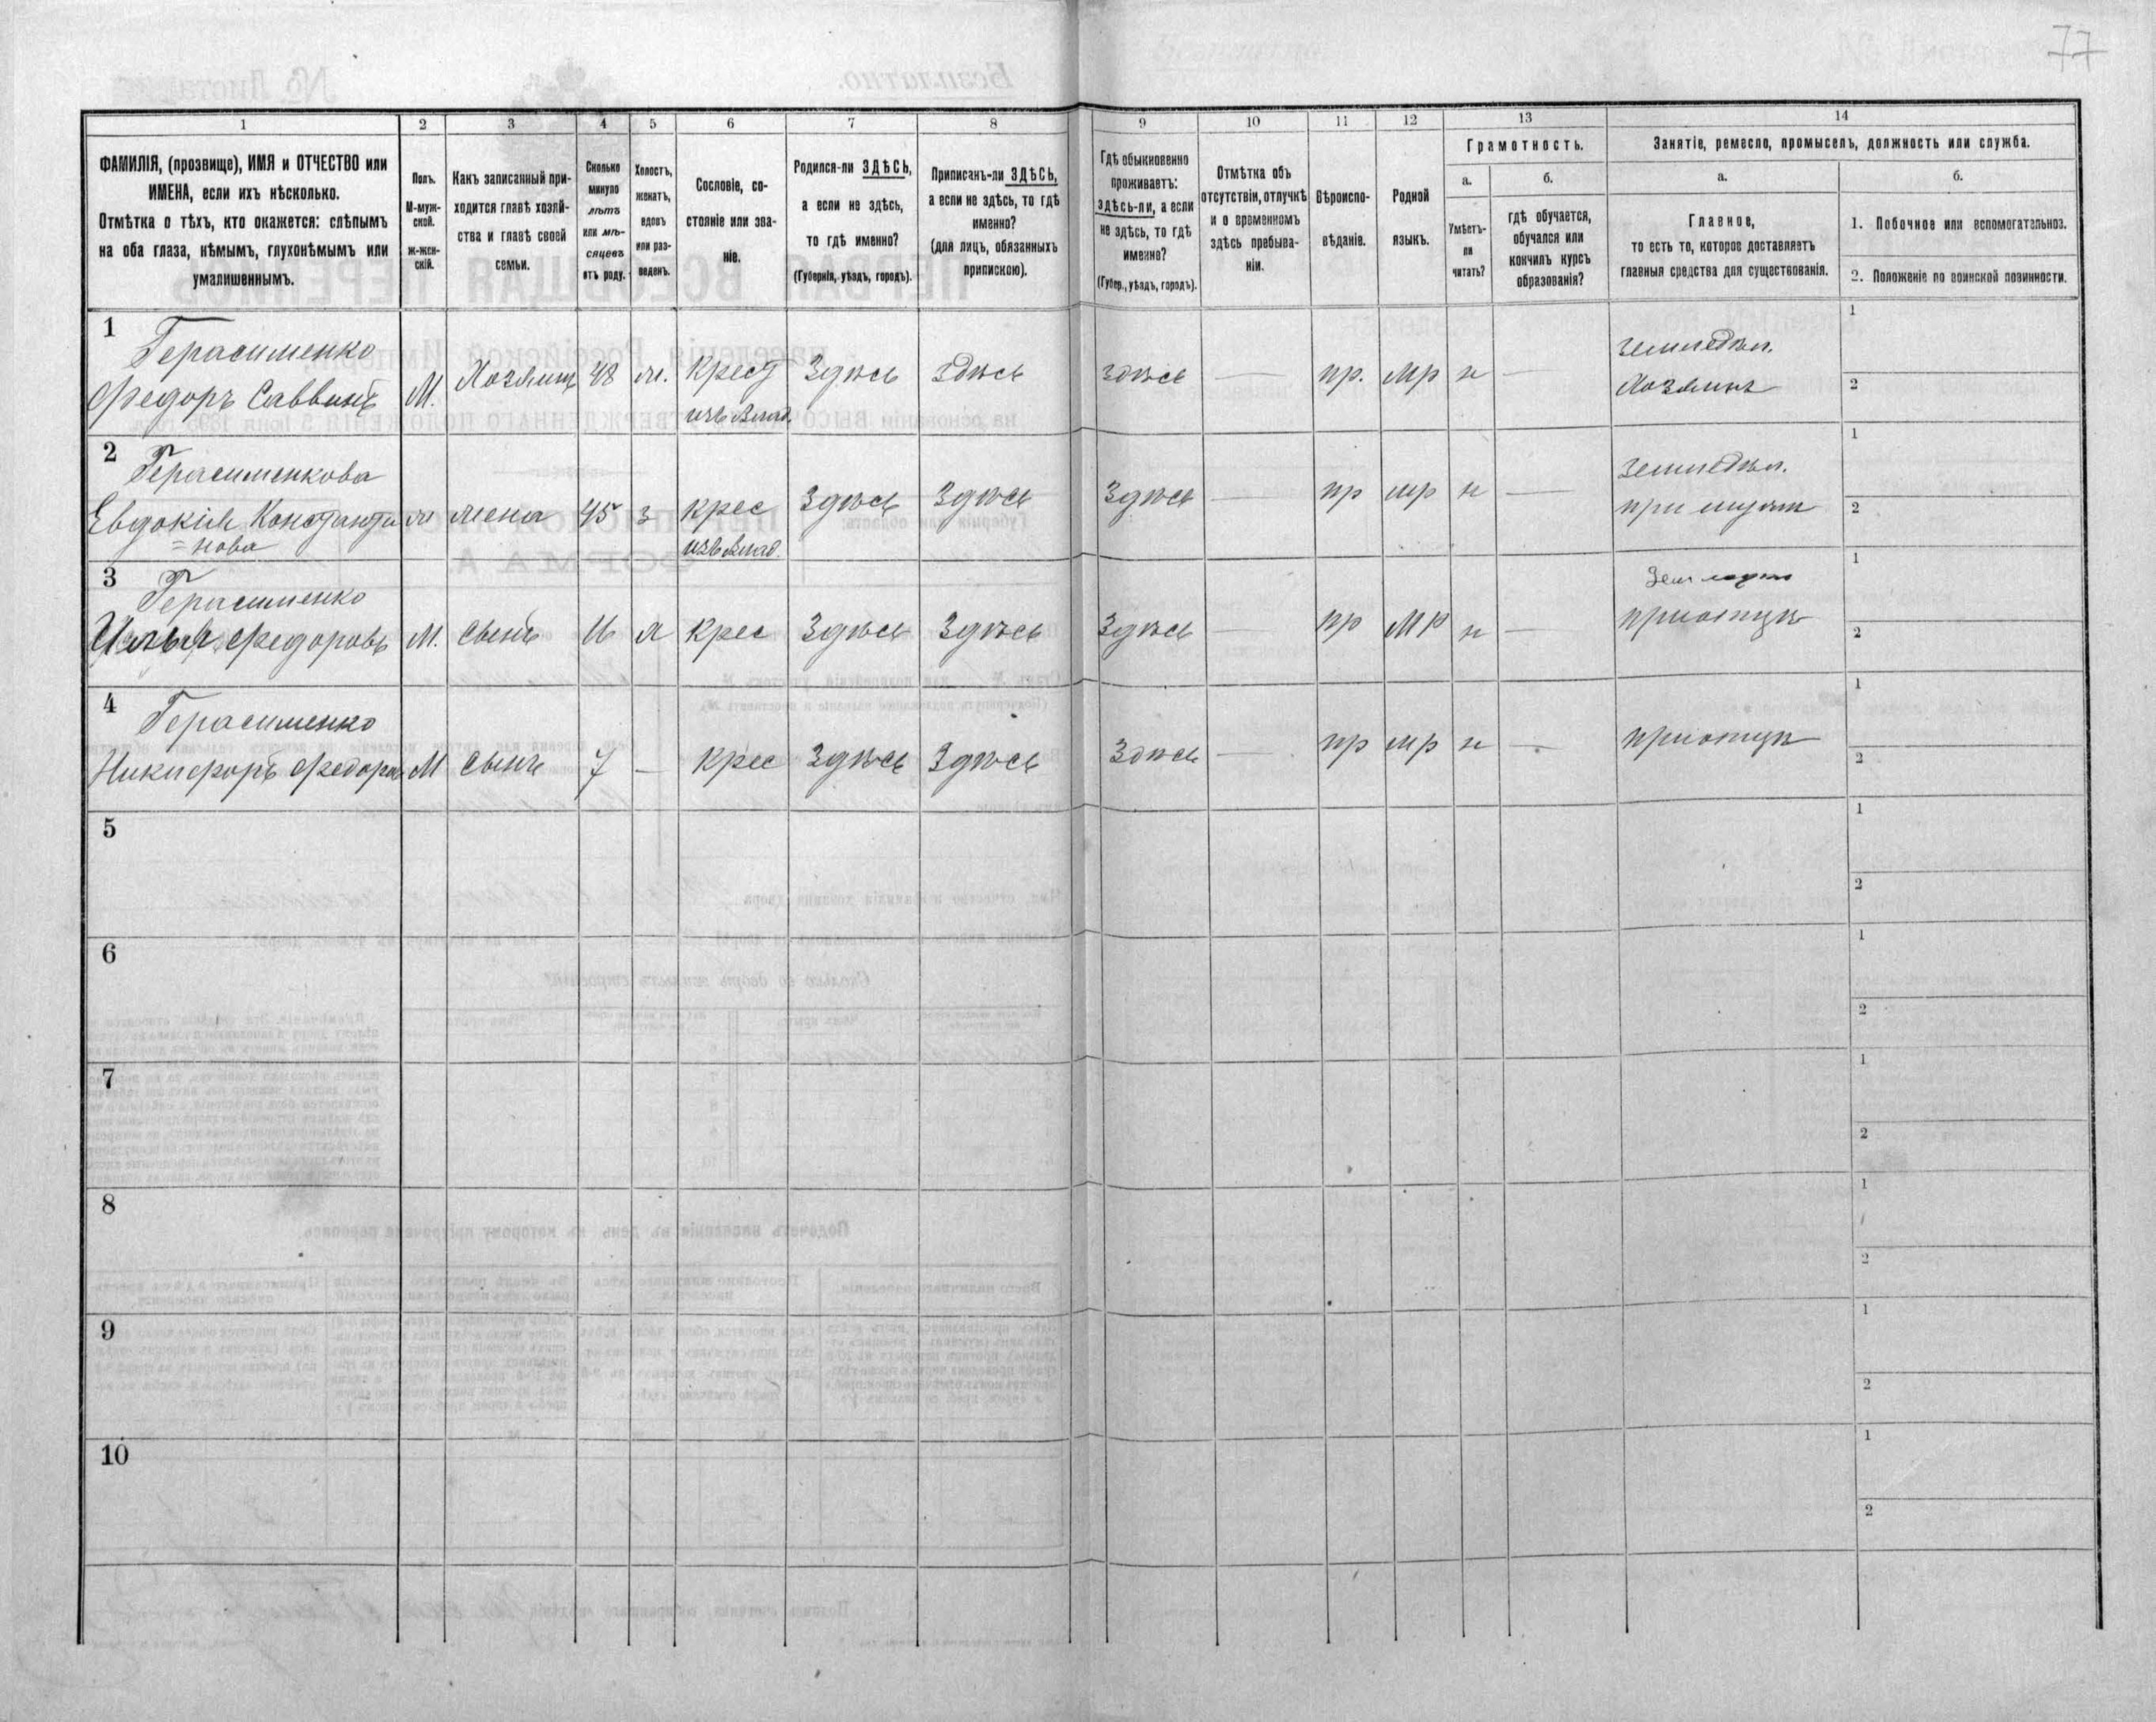 77
1
2
3
4
5
6
7
8
9
10
11
12
13
14
ФАМИЛІЯ, (прозвище), ИМЯ и ОТЧЕСТВО или
ИМЕНА, если ихъ нѣсколько.
Отмѣтка о тѣхъ, кто окажется: слѣпымъ
на оба глаза, нѣмымъ, глухонѣмымъ или
умалишеннымъ.
Полъ.
М-муж-
ской.
ж-жен-
скій.
Какъ записанный при-
ходится главѣ хозяй-
ства и главѣ своей
семьи.
Сколько
минуло
лѣтъ
или мѣ-
сяцевъ
отъ роду.
Холостъ,
женатъ,
вдовъ
или раз-
веденъ.
Сословіе, со-
стояніе или зва-
ніе.
Родился-ли ЗДѢСЬ,
а если не здѣсь,
то гдѣ именно?
(Губернія, уѣздъ, городъ).
Приписанъ-ли ЗДѢСЬ,
а если не здѣсь, то гдѣ
именно?
(для лицъ, обязанныхъ
припискою).
Гдѣ обыкновенно
проживаетъ:
здѣсь-ли, а если
не здѣсь, то гдѣ
именно?
(Губер., уѣздъ, городъ).
Отмѣтка объ
отсутствіи, отлучкѣ
и о временномъ
здѣсь пребыва-
ніи.
Вѣроиспо-
вѣданіе.
Родной
языкъ.
Грамотность.
а.
Умѣетъ-
ли
читать?
б.
гдѣ обучается,
обучался или
кончилъ курсъ
образованія?
Занятіе, ремесло, промыселъ, должность или служба.
а.
Главное,
то есть то, которое доставляетъ
главныя средства для существованія.
б.
1. Побочное или вспомогательное.
2. Положеніе по воинской повинности.
1
Герасименко
Федоръ Саввинъ
М.
Хозяинъ
48
ж.
Крест
изъ Влад.
Здѣсь
Здѣсь
здѣсь
—
пр.
мр
н
—
Земледѣл.
Хозяинъ
1
2
2
Герасименкова
Евдокія Константи
=нова
жена
45
з
крес
изъ Влад.
Здѣсь
Здѣсь
Здѣсь
—
пр
мр
н
—
Земледѣл.
при мужѣ
1
2
3
Герасименко
Илья Федоровъ
М.
Сынъ
х
крес
Здѣсь
Здѣсь
Здѣсь
—
пр
мр
н
—
при отцѣ
1
2
4
Герасименко
Никифоръ Федоров
М
Сынъ
7
—
крес
Здѣсь
Здѣсь
Здѣсь
—
пр
мр
н
—
при отцѣ
1
2
5
1
2
6
1
2
7
1
2
8
1
2
9
1
2
10
1
2